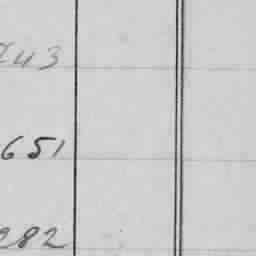 243
651
282